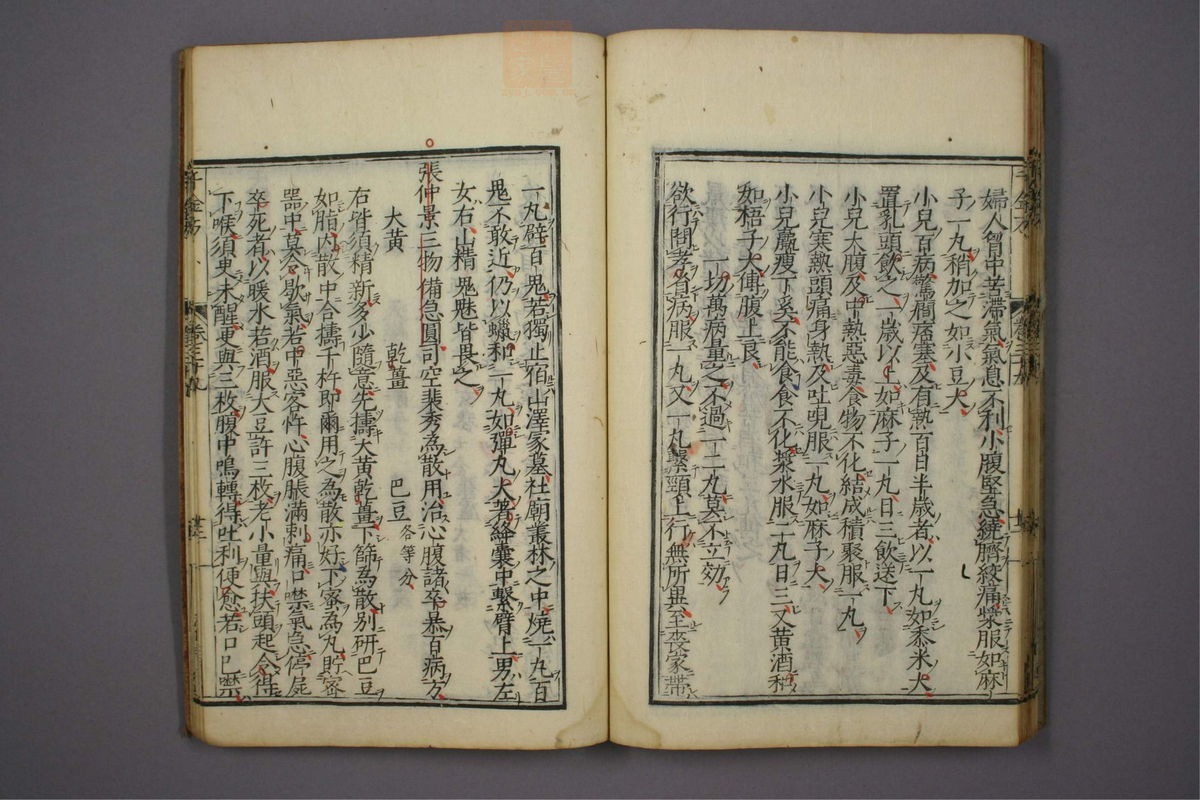 婦人胷中苦滯氣氣息不利小腹堅急繞臍絞痛漿服如麻
子一丸稍加之如小豆大
小兒百病驚癇痞塞及有熱百日半歲者以一丸如黍米大
置乳頭飲之一歲以上如麻子一丸日三飲送下
小兒大腹及中熱惡毒食物不化結成積聚服一丸
小兒寒熱頭痛身熱及吐哯服一丸如麻子大
小兒羸瘦丁奚不能食食不化漿水服二丸日三又苦酒和
如梧子大傅腹上良
一切萬病量之不過一二丸莫不立効
欲行問孝省病服一丸又一丸繫頸上行無所畏至喪家帶
一丸辟百鬼若獨止宿山澤冢墓社廟叢林之中燒一丸百
鬼不敢近仍以蠟和一丸如彈丸大著絳囊中繫臂上男左
女右山精鬼魅皆畏之
張仲景三物備急圓司空裴秀為散用治心腹諸卒暴百病方
大黄 乾薑 巴豆各等分
右皆須精新多少隨意先擣大黄乾薑下篩為散別研巴豆
如脂内散中合擣千杵即爾用之為散亦好下蜜為丸貯密
器中莫令歇氣若中惡客忤心腹脹滿刺痛口噤氣急停屍
卒死者以暖水若酒服大豆許三枚老小量與扶頭起令得
下喉須臾未醒更與三枚腹中鳴轉得吐利便愈若口已噤
千金方
卷三十九